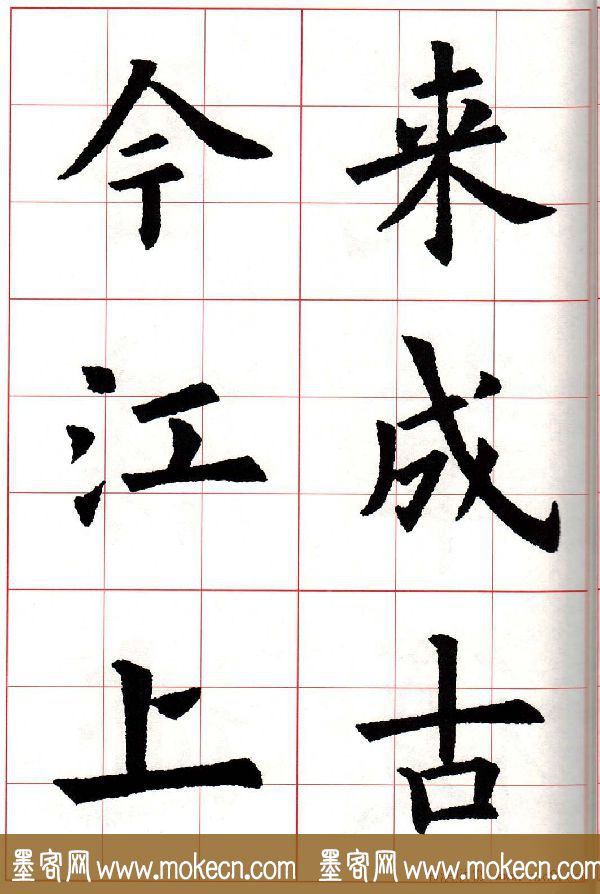 来成古
今江上
墨客网 www.mokecn.com 墨客网 www.mokecn.com